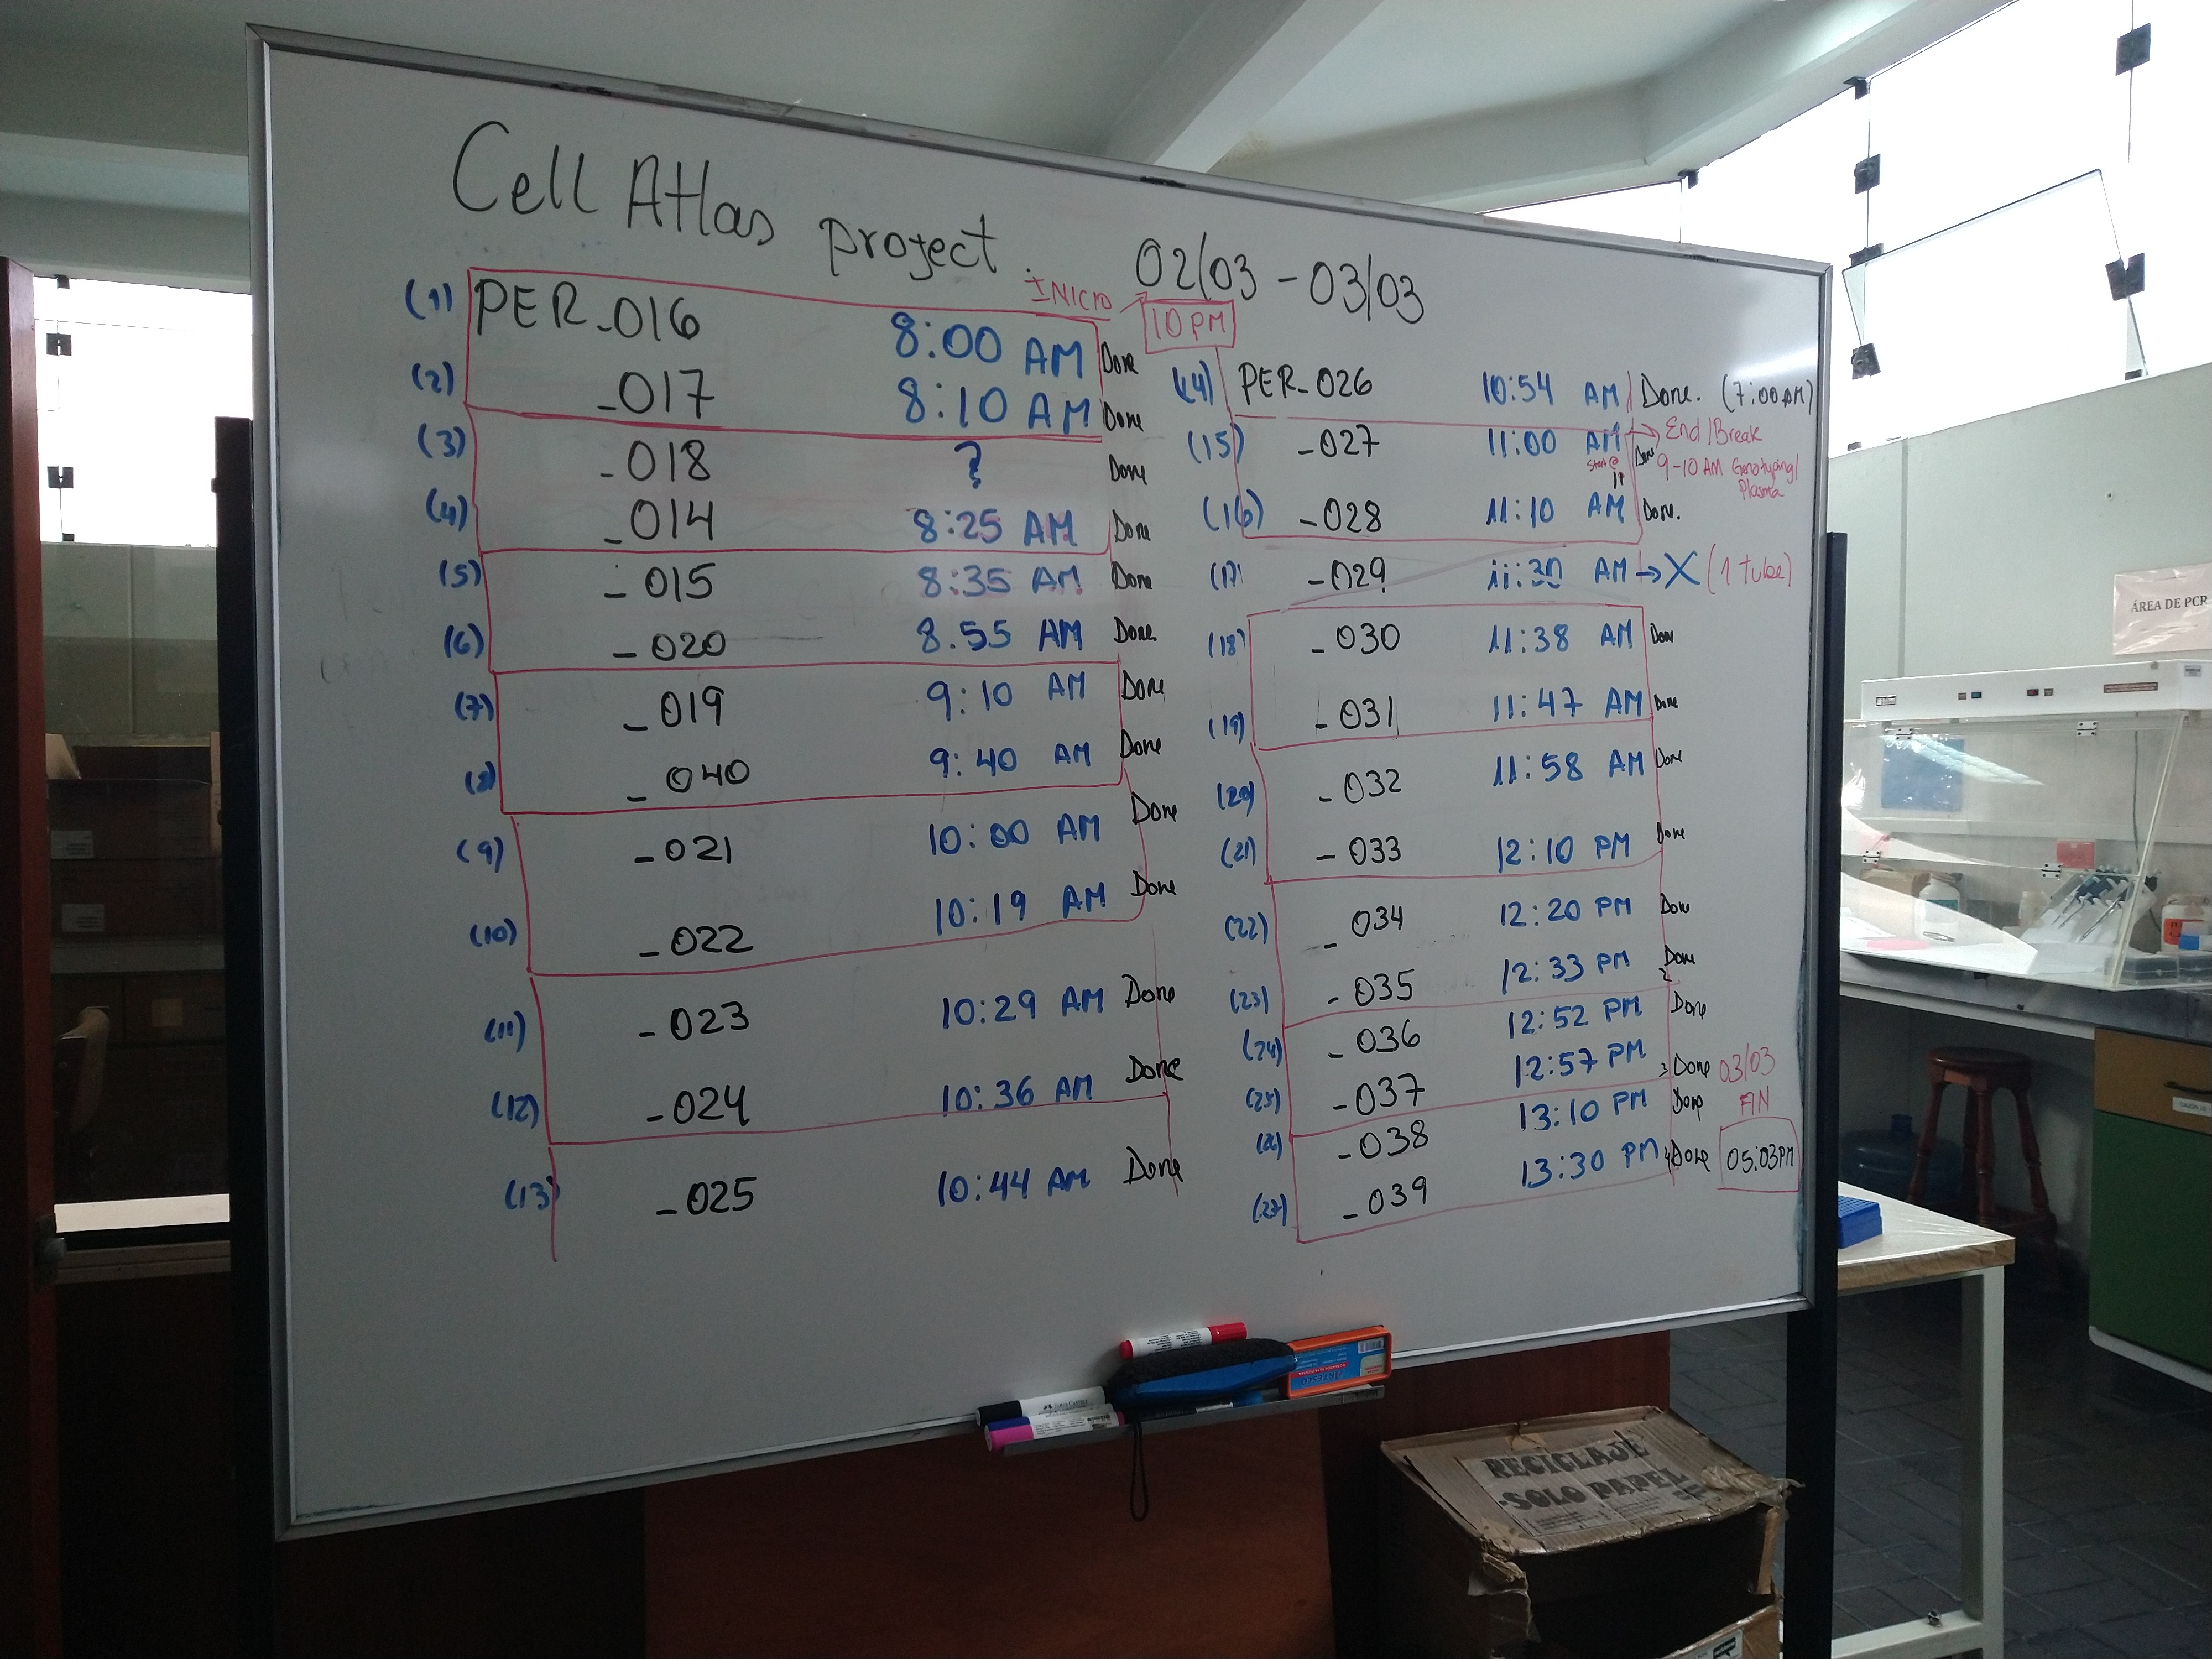 Cell Atlas project. 02/03 - 03/03
INICIO
10 PM
(1) PER_016 8:00 AM Done
(2) _017 8:10 AM Done
(3) _018 ? Done
(4) _014 8:25 AM Done
(5) _015 8:35 AM Done
(6) _020 8:55 AM Done
(7) _019 9:10 AM Done
(8) _040 9:40 AM Done
(9) _021 10:00 AM Done
(10) _022 10:19 AM Done
(11) _023 10:29 AM Done
(12) _024 10:36 AM Done
(13) _025 10:44 AM Done
(14) PER_026 10:54 AM Done. (7:00AM)
End/Break
(15) _027 11:00 AM Done
9-10 AM Genotyping/
Plasma
(16) _028 11:10 AM Done.
(17) _029 11:30 AM → X (1 tube)
(18) _030 11:38 AM Done
(19) _031 11:47 AM Done
(20) _032 11:58 AM Done
(21) _033 12:10 PM Done
(22) _034 12:20 PM Done
(23) _035 12:33 PM Done
(24) _036 12:52 PM Done
(25) _037 12:57 PM Done
(26) _038 13:10 PM Done
(27) _039 13:30 PM Done
03/03
FIN
05:03PM
ÁREA DE PCR
ARTESCO
RECICLAJE
-SOLO PAPEL